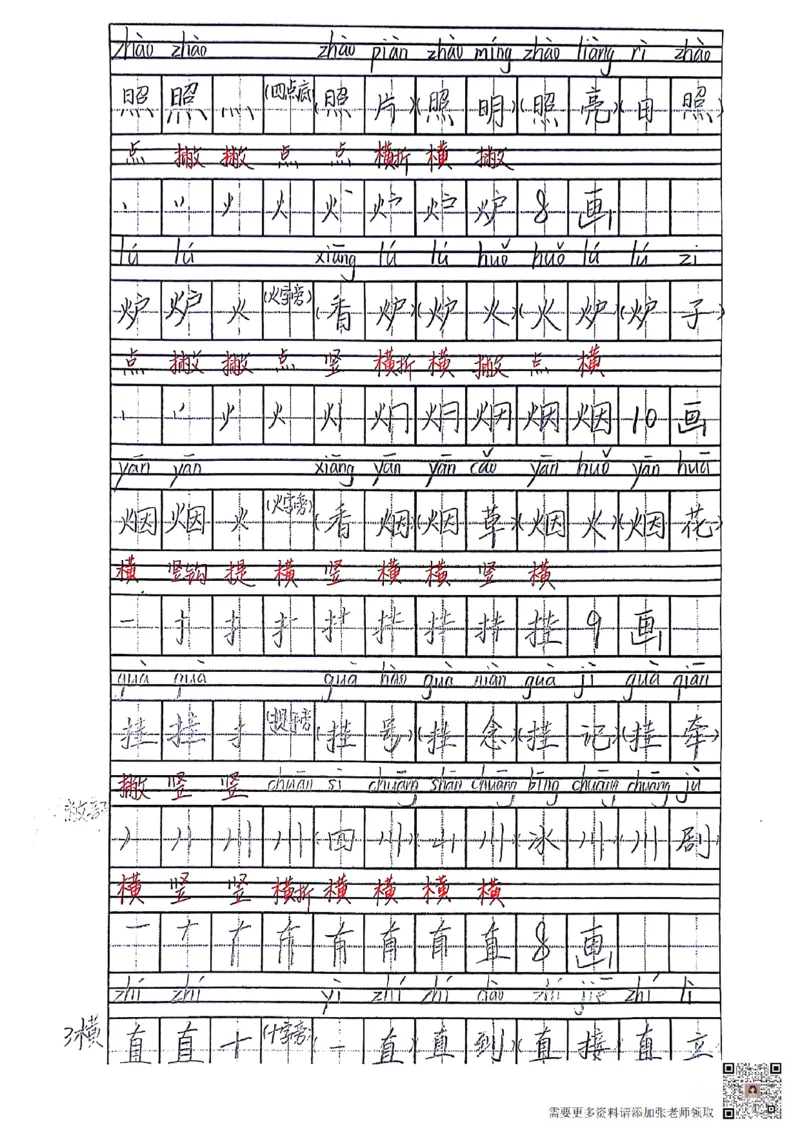 zhào zhào zhào piàn zhào míng zhào liàng rì zhào
照 照 灬 (四点底) (照 片) (照 明) (照 亮) (日 照)
点 撇 撇 点 点 横折 横 撇
炉 8 画
lú lú xiāng lú lú huǒ huǒ lú lú zi
炉 炉 火 (火字旁) (香 炉) (炉 火) (火 炉) (炉 子)
点 撇 撇 点 竖 横折 横 撇 点 横
烟 10 画
yān yān xiāng yān yān cǎo yān huǒ yān huā
烟 烟 火 (火字旁) (香 烟) (烟 草) (烟 火) (烟 花)
横 竖钩 提 横 竖 横 横 竖 横
一 扌 挂 9 画
guà guà guà hào guà niàn guà jì guà qiān
挂 挂 扌 (提手旁) (挂 号) (挂 念) (挂 记) (挂 牵)
撇 竖 竖 chuān sì chuān shān chuān bīng chuān chuān jù
丿 川 川 (四 川) (山 川) (冰 川) (川 剧)
横 竖 竖 横折 横 横 横 横
一 十 直 8 画
zhí zhí yì zhí zhí dào zhí jiē zhí lì
3横 直 直 十 (十字旁) (一 直) (直 到) (直 接) (直 立)
需要更多资料请添加张老师领取